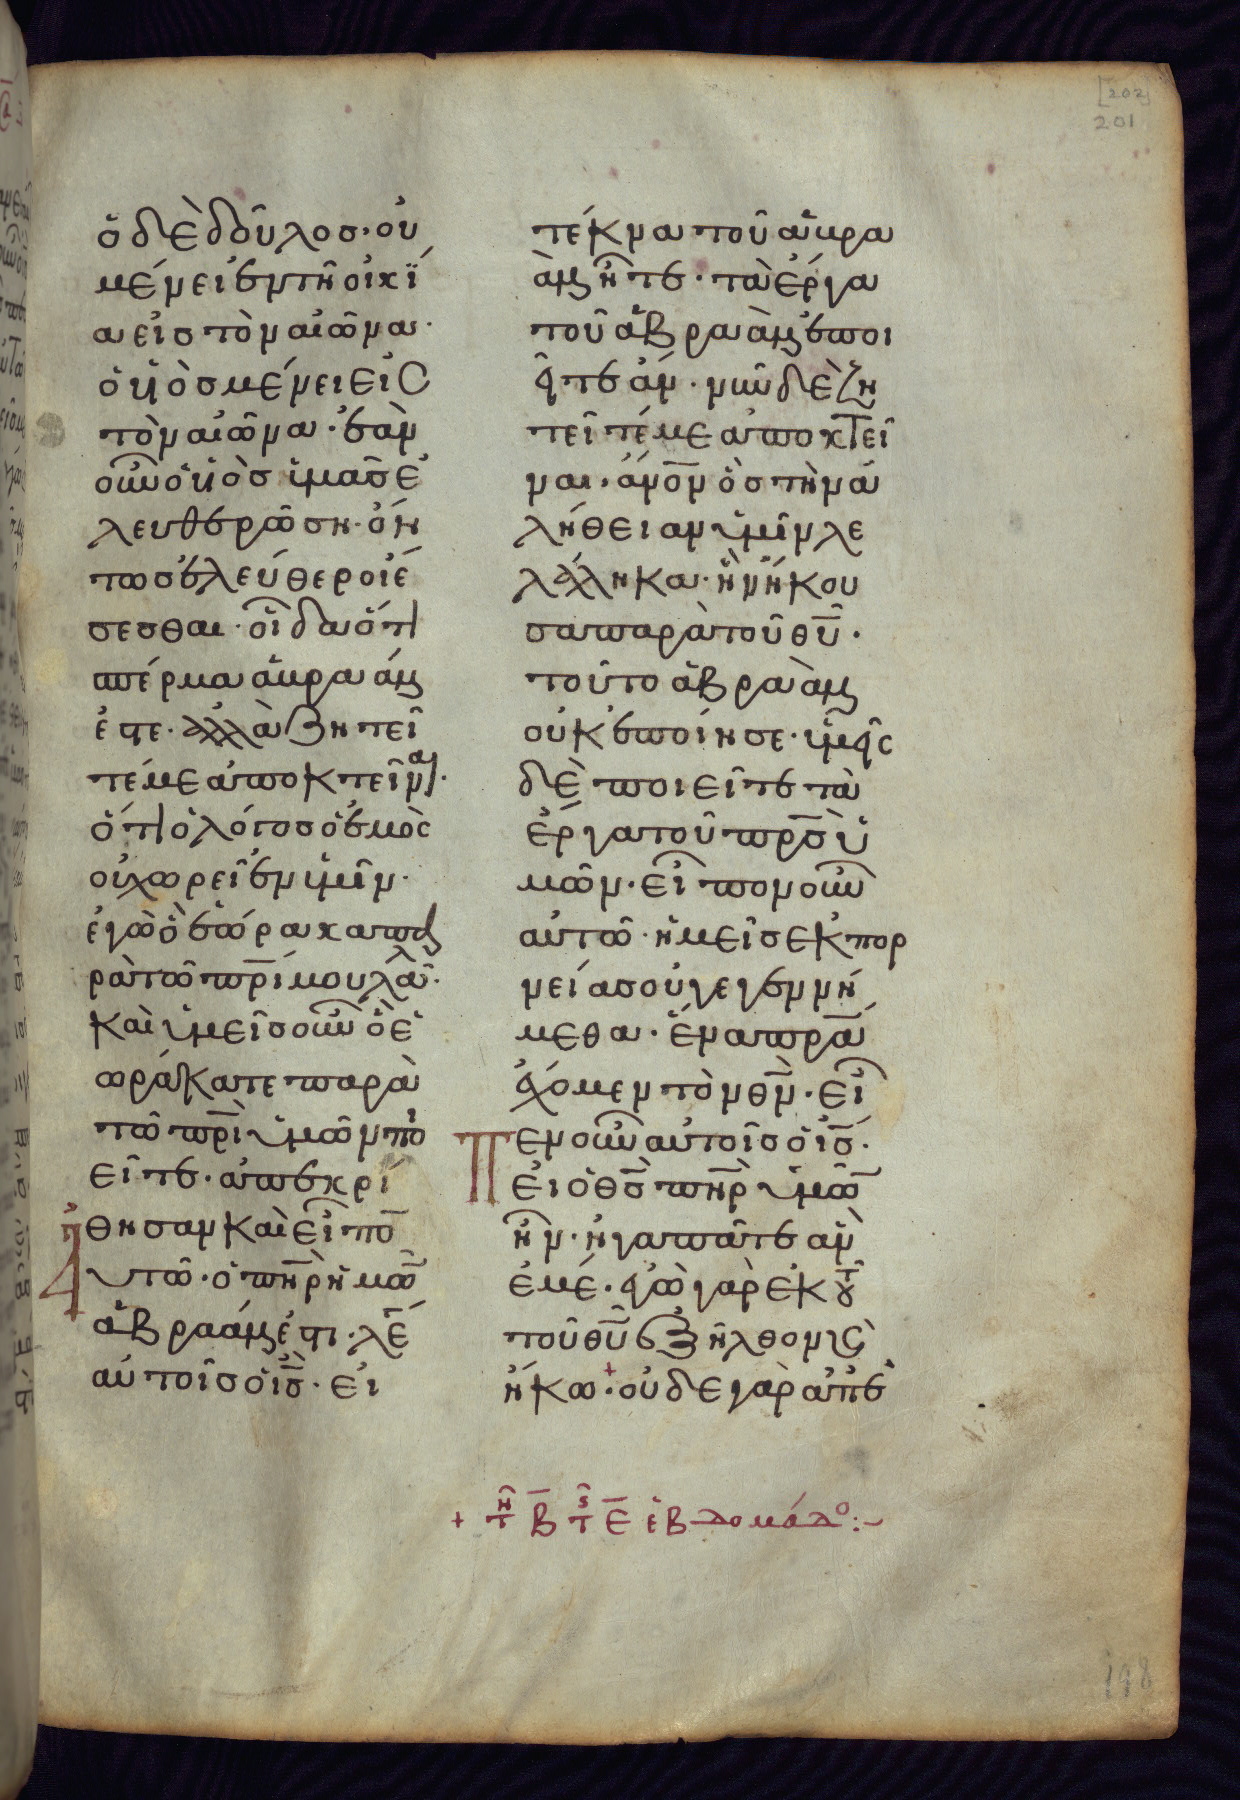 [202]
201
ὁ δὲ δοῦλος· οὐ
μένει ἐν τῆ οἰκί
α εἰς τὸν αἰῶνα·
ὁ υἱὸς μένει εἰς
τὸν αἰῶνα· ἐὰν
οὖν ὁ υἱὸς ὑμᾶς ἐ
λευθερώση· ὄν
τως ἐλεύθεροι ἔ
σεσθαι· οἶδα ὅτι
σπέρμα ἀβραάμ
ἐστε· ἀλλὰ ζητεῖ
τέ με ἀποκτεῖναι·
ὅτι ὁ λόγος ὁ ἐμὸς
οὐ χωρεῖ ἐν ὑμῖν·
ἐγὼ ὃ ἑώρακα πα
ρὰ τῶ πρί μου λαλῶ·
καὶ ὑμεῖς οὖν ὃ ἑ
ωράκατε παρὰ
τῶ πρὶ ὑμῶν ποι
εῖτε· ἀπεκρί
θησαν καὶ εἶπον
αὐτῶ· ὁ πηρ ἡμῶν
ἀβραάμ ἐστι· λέγει
αὐτοῖς ὁ ις· εἰ
τέκνα τοῦ ἀβρα
ὰμ ἦτε· τὰ ἔργα
τοῦ ἀβραὰμ ἐποι
εῖτε ἄν· νῦν δὲ ζη
τεῖτέ με ἀποκτεῖ
ναι· ἄνον ὃς τὴν ἀ
λήθειαν ὑμῖν λε
λάληκα· ἣν ἤκου
σα παρὰ τοῦ θυ·
τοῦτο ἀβραὰμ
οὐκ ἐποίησε· ὑμεῖς
δὲ ποιεῖτε τὰ
ἔργα τοῦ πρς ὑ
μῶν· εἶπον οὖν
αὐτῶ· ἡμεῖς ἐκ πορ
νείας οὐ γεγεννή
μεθα· ἕνα πρα
ἔχομεν τὸν θν· εἶ
πεν οὖν αὐτοῖς ὁ ις·
Εἰ ὁ θς πηρ ὑμῶν
ἦν· ἠγαπᾶτε ἂν
ἐμέ· ἐγὼ γὰρ ἐκ
τοῦ θυ ἐξῆλθον καὶ
ἥκω· οὐδε γὰρ ἀπ᾽ ἐ
+ τη β τς ε ἑβδομάδο:~
198